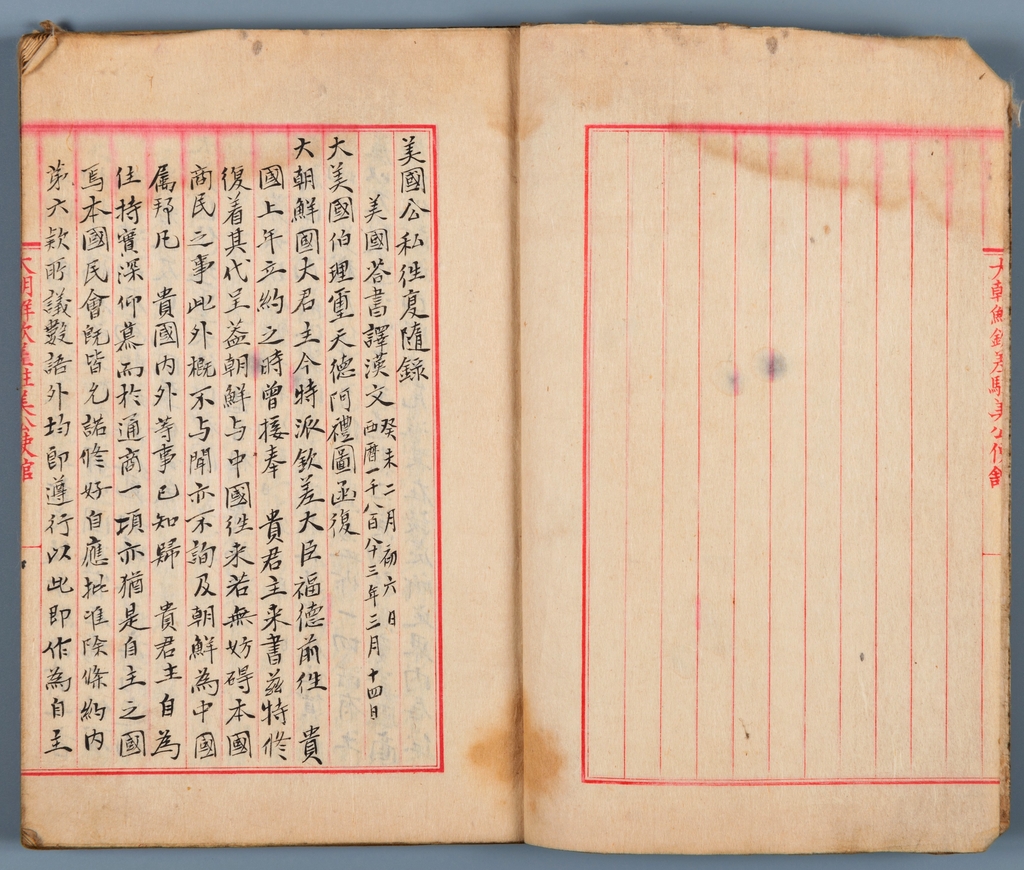 大朝鮮欽差駐美公使館
美國公私往復隨錄
美國答書譯漢文 癸未二月初六日
西曆一千八百八十三年三月十四日
大美國伯理璽天德阿禮圖函復
大朝鮮國大君主今特派欽差大臣福德前往 貴
國上年立約之時曾接奉 貴君主來書茲特修
復着其代呈益朝鮮与中國往來若無妨碍本國
商民之事此外概不与聞亦不詢及朝鮮為中國
属邦凡 貴國内外等事已知歸 貴君主自為
住持實深仰慕而於通商一項亦猶是自主之國
焉本國民會既皆允諾修好自應批准除條約内
第六款所議數語外均即遵行以此即作為自主
大朝鮮欽差駐美公使館